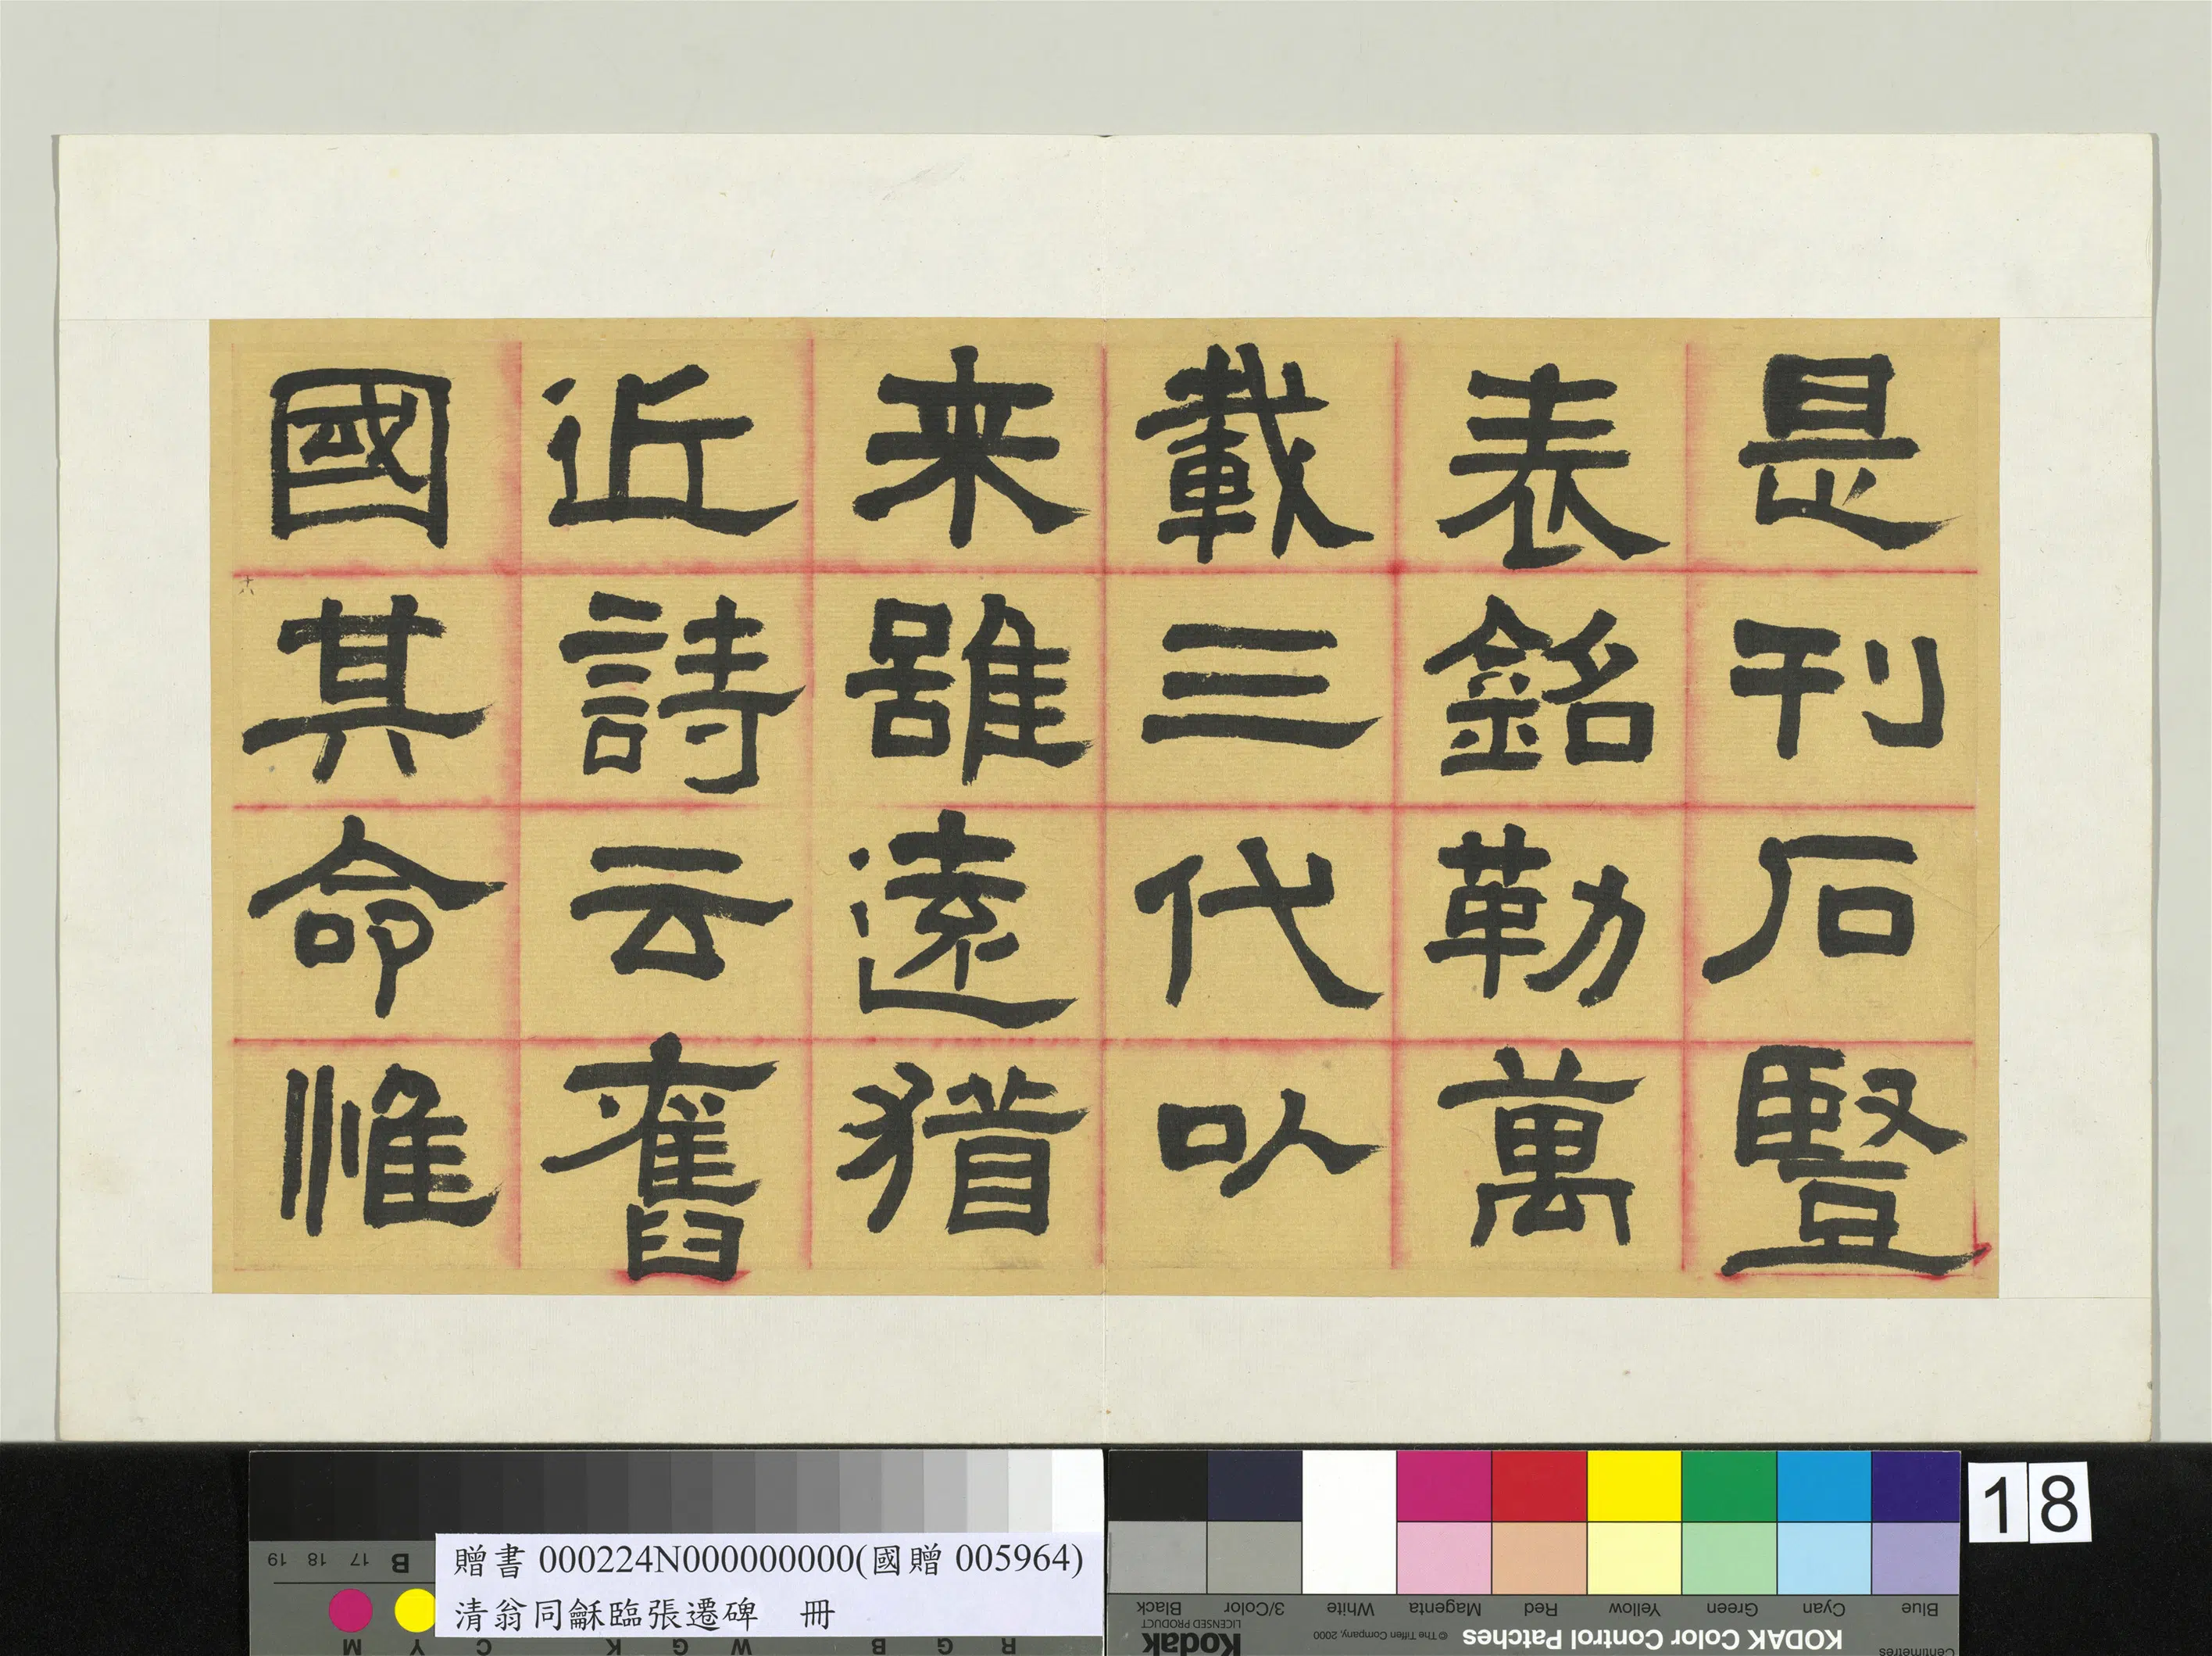 是刊石豎
表銘勒萬
載三代以
来雖遠猶
近詩云舊
國其命惟
十六
贈書 000224N000000000(國贈 005964)
清翁同龢臨張遷碑 冊
18
19 18 17 B
M Y C K G W G B G R
Black 3/Color White Magenta Red Yellow Green Cyan Blue
Kodak
LICENSED PRODUCT
© The Tiffen Company, 2000
KODAK Color Control Patches
Centimetres